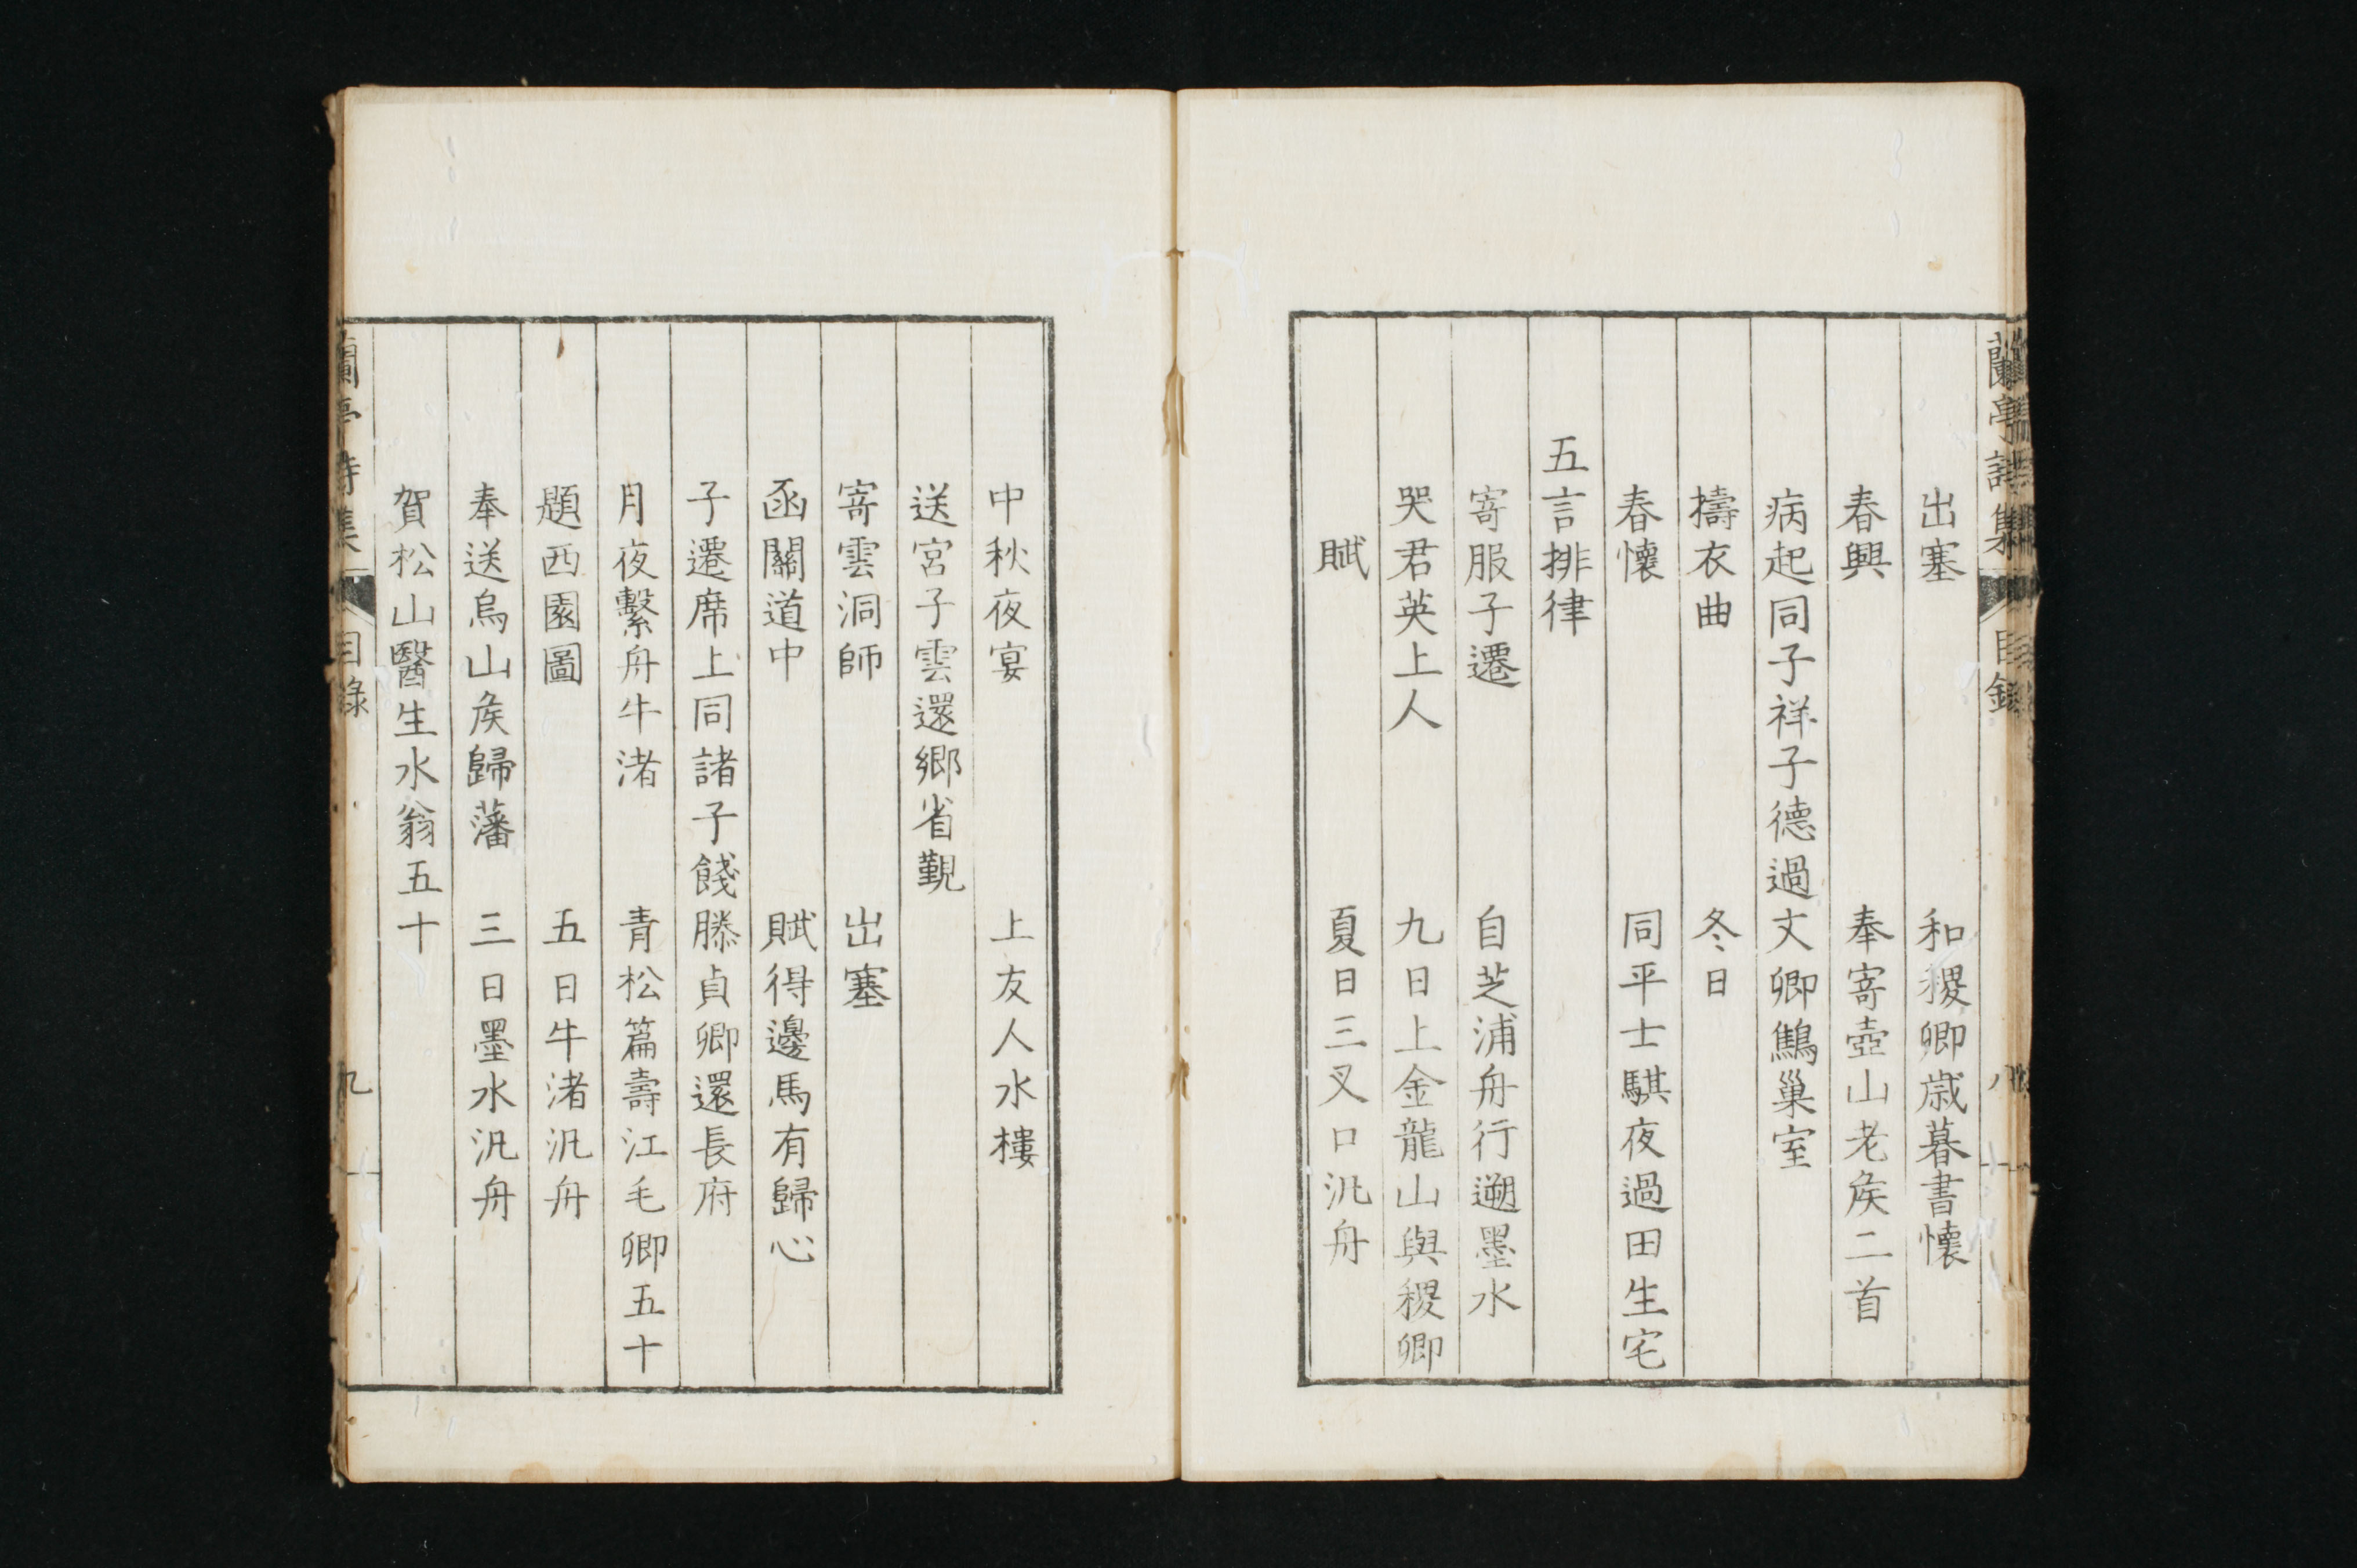 蘭亭詩集 目錄 八
出塞 和稷卿歳暮書懷
春興 奉寄壺山老矦二首
病起同子祥子德過文卿鷦巢室
擣衣曲 冬日
春懷 同平士騏夜過田生宅
五言排律
寄服子遷 自芝浦舟行遡墨水
哭君英上人 九日上金龍山與稷卿
賦 夏日三叉口汎舟
中秋夜宴 上友人水樓
送宮子雲還鄉省覲
寄雲洞師 出塞
函關道中 賦得邊馬有歸心
子遷席上同諸子餞滕貞卿還長府
月夜繫舟牛渚 青松篇壽江毛卿五十
題西園圖 五日牛渚汎舟
奉送烏山矦歸藩 三日墨水汎舟
賀松山醫生水翁五十
蘭亭詩集 目錄 九